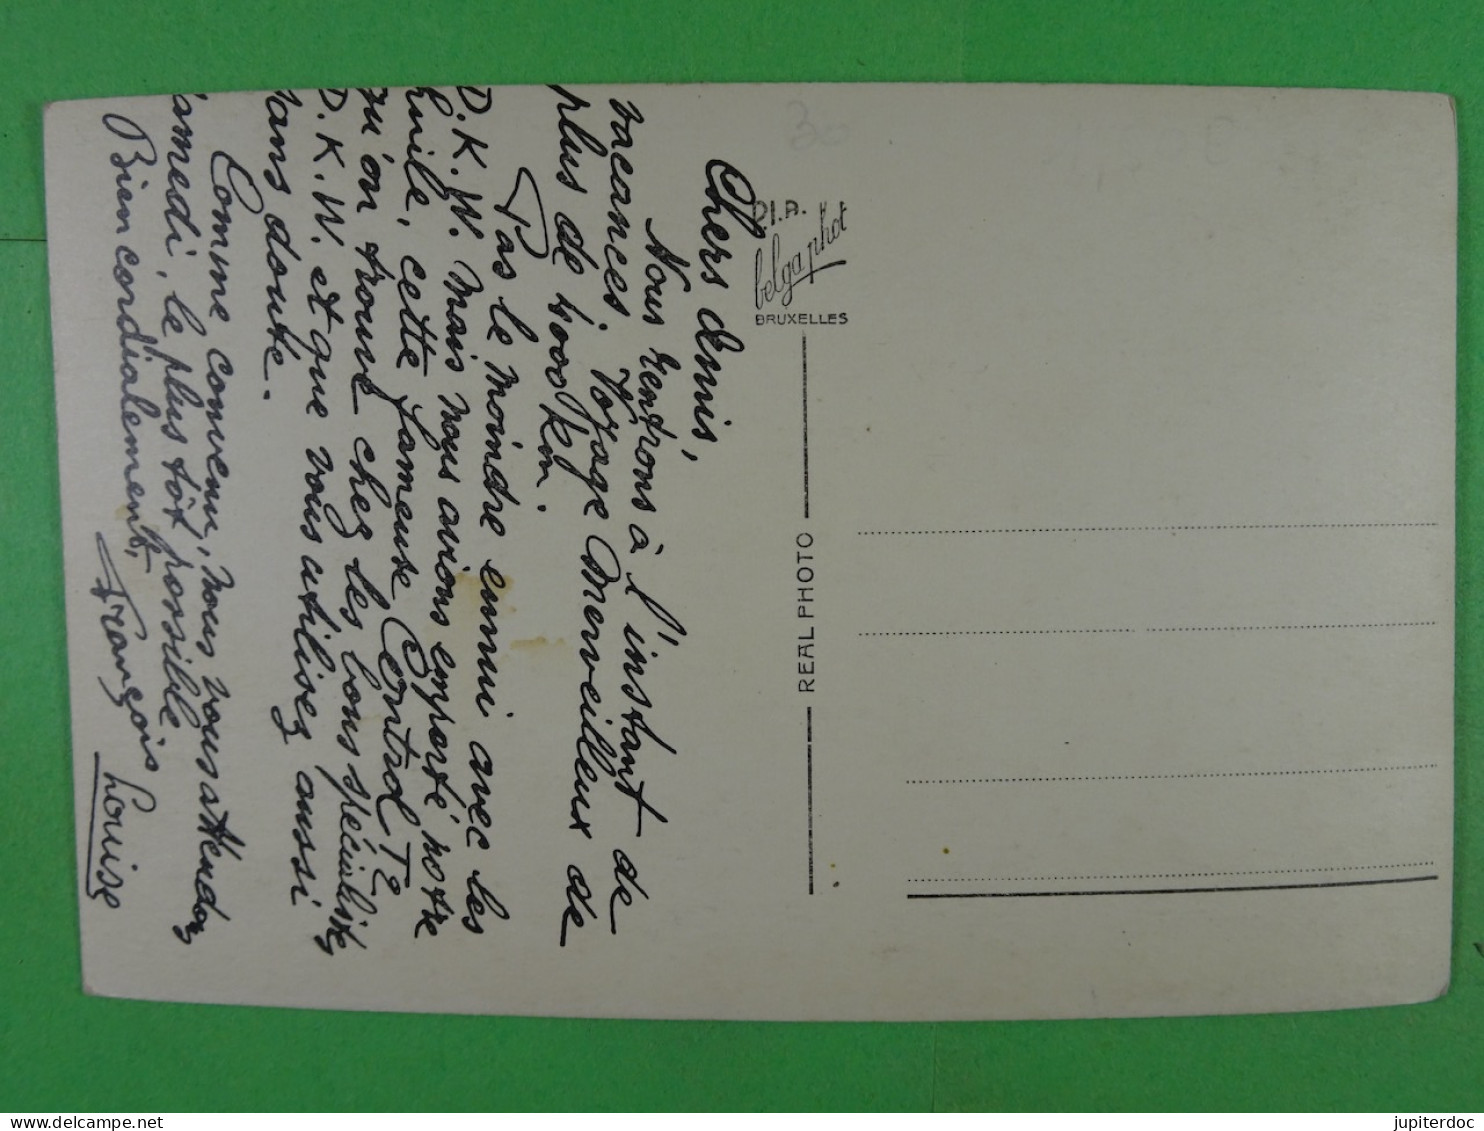 Chers Amis,
Nous rentrons à l'instant de
vacances. Voyage merveilleux de
plus de 4000 km.
Pas le moindre ennui avec les
D.K.W. Mais nous avions emporté notre
huile, cette fameuse Control TE
qu'on trouve chez les bons spécialistes
D.K.W. et que vous utilisez aussi
sans doute.
Comme convenu, nous vous attendons
samedi, le plus tôt possible
Bien cordialement,
François
Louise
30
D.I.A.
belga phot
BRUXELLES
REAL PHOTO
delcampe.net
jupiterdoc